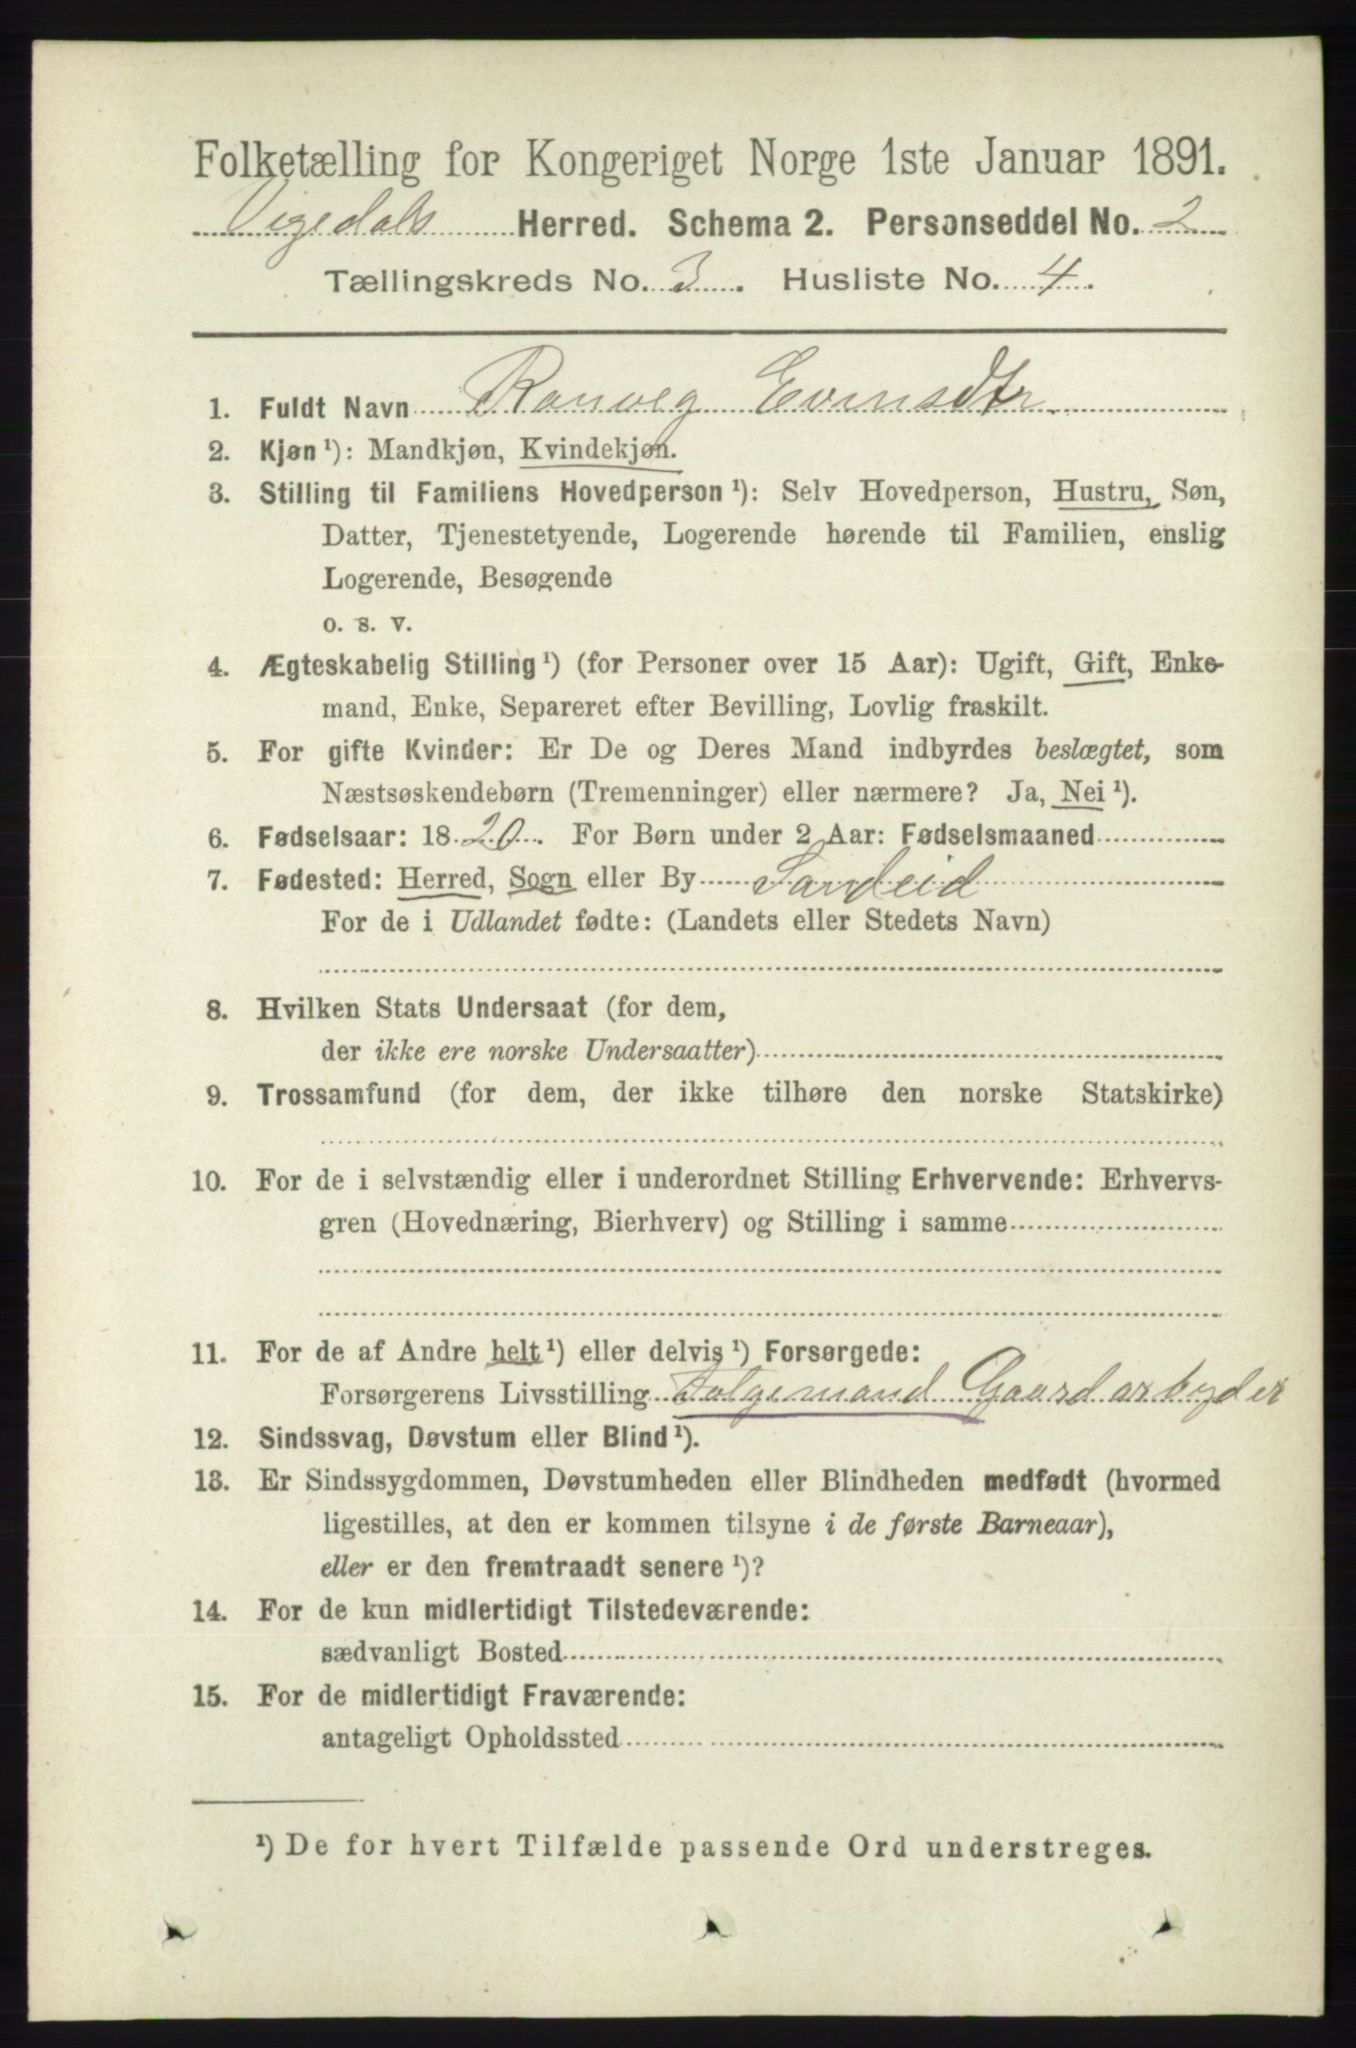 Folketælling for Kongeriget Norge 1ste Januar 1891.
Vigedals Herred. Schema 2. Personseddel No. 2
Tællingskreds No. 3. Husliste No. 4.
1. Fuldt Navn Ranveg Evinsdtr.
2. Kjøn ¹): Mandkjøn, Kvindekjøn.
3. Stilling til Familiens Hovedperson ¹): Selv Hovedperson, Hustru, Søn,
Datter, Tjenestetyende, Logerende hørende til Familien, enslig
Logerende, Besøgende
o. s. v.
4. Ægteskabelig Stilling ¹) (for Personer over 15 Aar): Ugift, Gift, Enke-
mand, Enke, Separeret efter Bevilling, Lovlig fraskilt.
5. For gifte Kvinder: Er De og Deres Mand indbyrdes beslægtet, som
Næstsøskendebørn (Tremenninger) eller nærmere? Ja, Nei ¹).
6. Fødselsaar: 1820. For Børn under 2 Aar: Fødselsmaaned
7. Fødested: Herred, Sogn eller By Sandeid
For de i Udlandet fødte: (Landets eller Stedets Navn)
8. Hvilken Stats Undersaat (for dem,
der ikke ere norske Undersaatter)
9. Trossamfund (for dem, der ikke tilhøre den norske Statskirke)
10. For de i selvstændig eller i underordnet Stilling Erhvervende: Erhvervs-
gren (Hovednæring, Bierhverv) og Stilling i samme
11. For de af Andre helt ¹) eller delvis ¹) Forsørgede:
Forsørgerens Livsstilling Folgemand Gaardarbeyder
12. Sindssvag, Døvstum eller Blind ¹).
13. Er Sindssygdommen, Døvstumheden eller Blindheden medfødt (hvormed
ligestilles, at den er kommen tilsyne i de første Barneaar),
eller er den fremtraadt senere ¹)?
14. For de kun midlertidigt Tilstedeværende:
sædvanligt Bosted
15. For de midlertidigt Fraværende:
antageligt Opholdssted
¹) De for hvert Tilfælde passende Ord understreges.